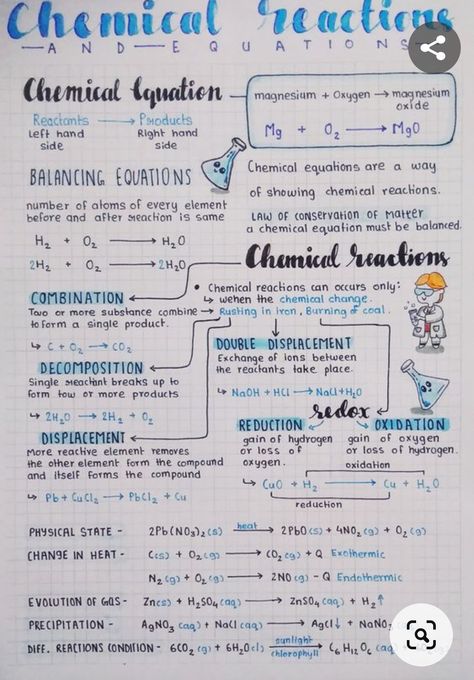 Chemical reactions
AND EQUATIONS
Chemical Equation
Reactants → Products
Left hand side Right hand side
magnesium + Oxygen → magnesium oxide
Mg + O₂ → MgO
BALANCING EQUATIONS
number of atoms of every element
before and after reaction is same
H₂ + O₂ → H₂O
2H₂ + O₂ → 2H₂O
Chemical equations are a way
of showing chemical reactions.
LAW OF CONSERVATION OF MATTER
a chemical equation must be balanced.
Chemical reactions
• Chemical reactions can occurs only:
↳ wehen the chemical change.
→ Rusting in iron, Burning of coal.
COMBINATION
Two or more substance combine
to form a single product.
↳ C + O₂ → CO₂
DECOMPOSITION
Single reactant breaks up to
form tow or more products
↳ 2H₂O → 2H₂ + O₂
DISPLACEMENT
More reactive element removes
the other element form the compound
and itself forms the compound
↳ Pb + CuCl₂ → PbCl₂ + Cu
DOUBLE DISPLACEMENT
Exchange of ions between
the reactants take place.
↳ NaOH + HCl → NaCl + H₂O
redox
REDUCTION
gain of hydrogen
or loss of
oxygen.
OXIDATION
gain of oxygen
or loss of hydrogen.
oxidation
↳ CuO + H₂ → Cu + H₂O
reduction
PHYSICAL STATE - 2Pb(NO₃)₂(s) heat→ 2PbO(s) + 4NO₂(g) + O₂(g)
CHANGE IN HEAT - C(s) + O₂(g) → CO₂(g) + Q Exothermic
N₂(g) + O₂(g) → 2NO(g) - Q Endothermic
EVOLUTION OF GAS - Zn(s) + H₂SO₄(aq) → ZnSO₄(aq) + H₂↑
PRECIPITATION - AgNO₃(aq) + NaCl(aq) → AgCl↓ + NaNO₃
DIFF. REACTIONS CONDITION - 6CO₂(g) + 6H₂O(l) sunlight→ chlorophyll C₆H₁₂O₆(aq)